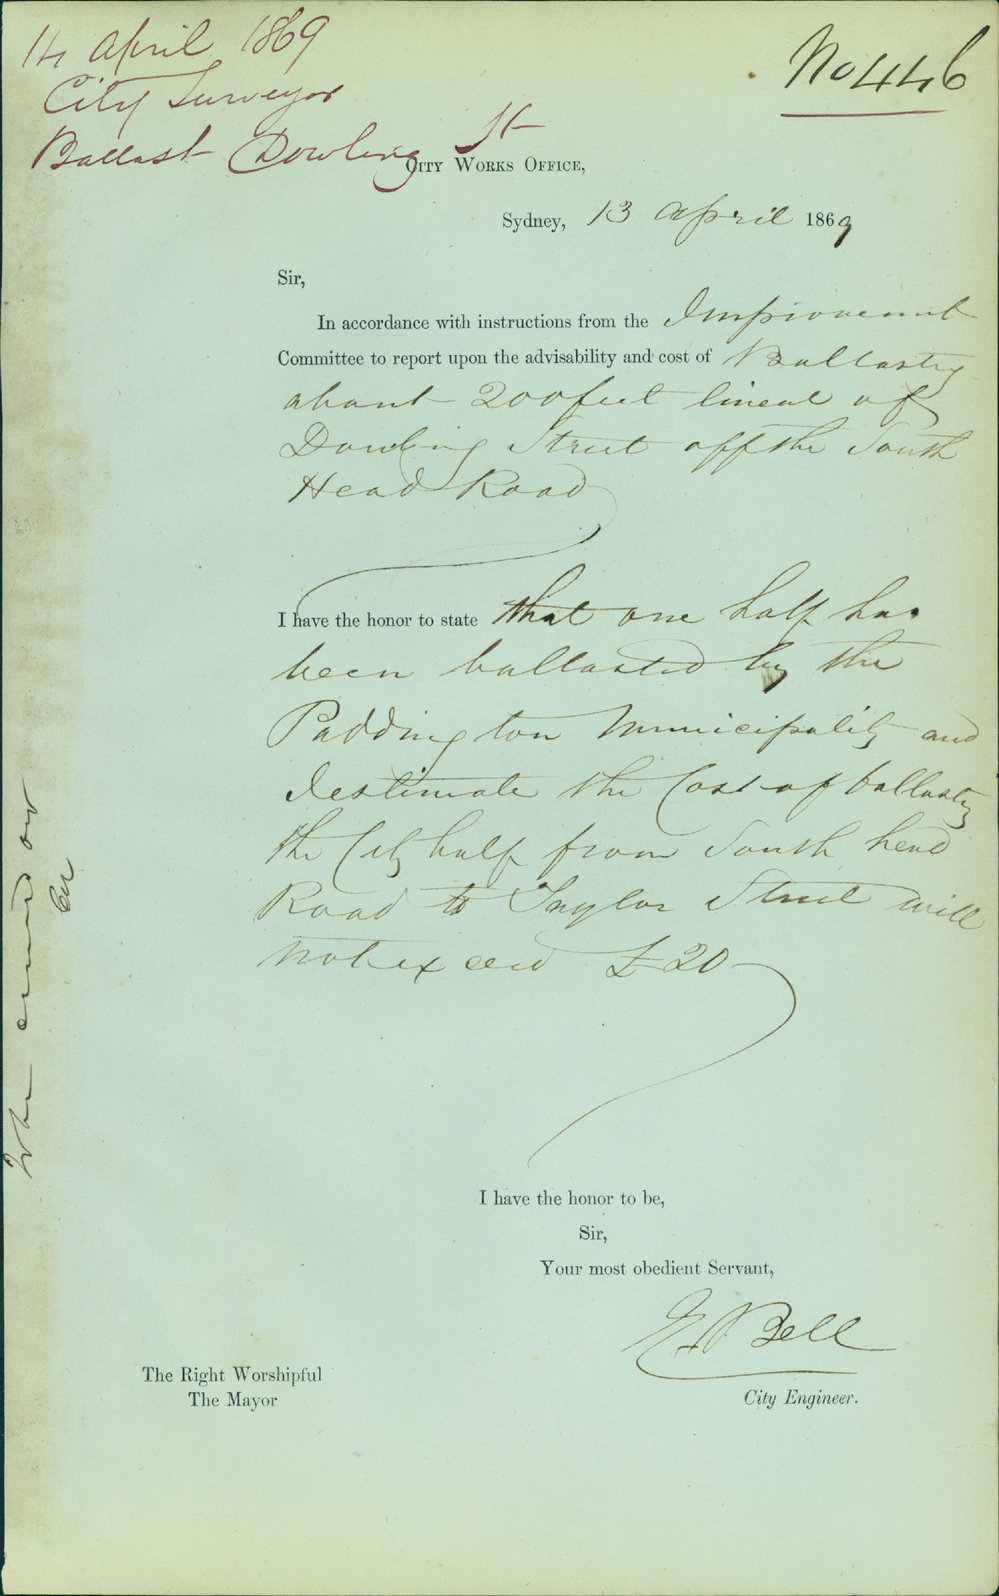 14 April 1869
City Surveyor
Ballast Dowling St
No 446
City Works Office,
Sydney, 13 April 1869
Sir,
In accordance with instructions from the Improvement
Committee to report upon the advisability and cost of Ballasting
about 200 feet lineal of
Dowling Street off the South
Head Road
I have the honor to state that one half has
been ballasted by the
Paddington Municipality and
I estimate the Cost of ballasting
the City half from South head
Road to Taylor Street will
not exceed £20
I have the honor to be,
Sir,
Your most obedient Servant,
E Bell
City Engineer.
The Right Worshipful
The Mayor
When